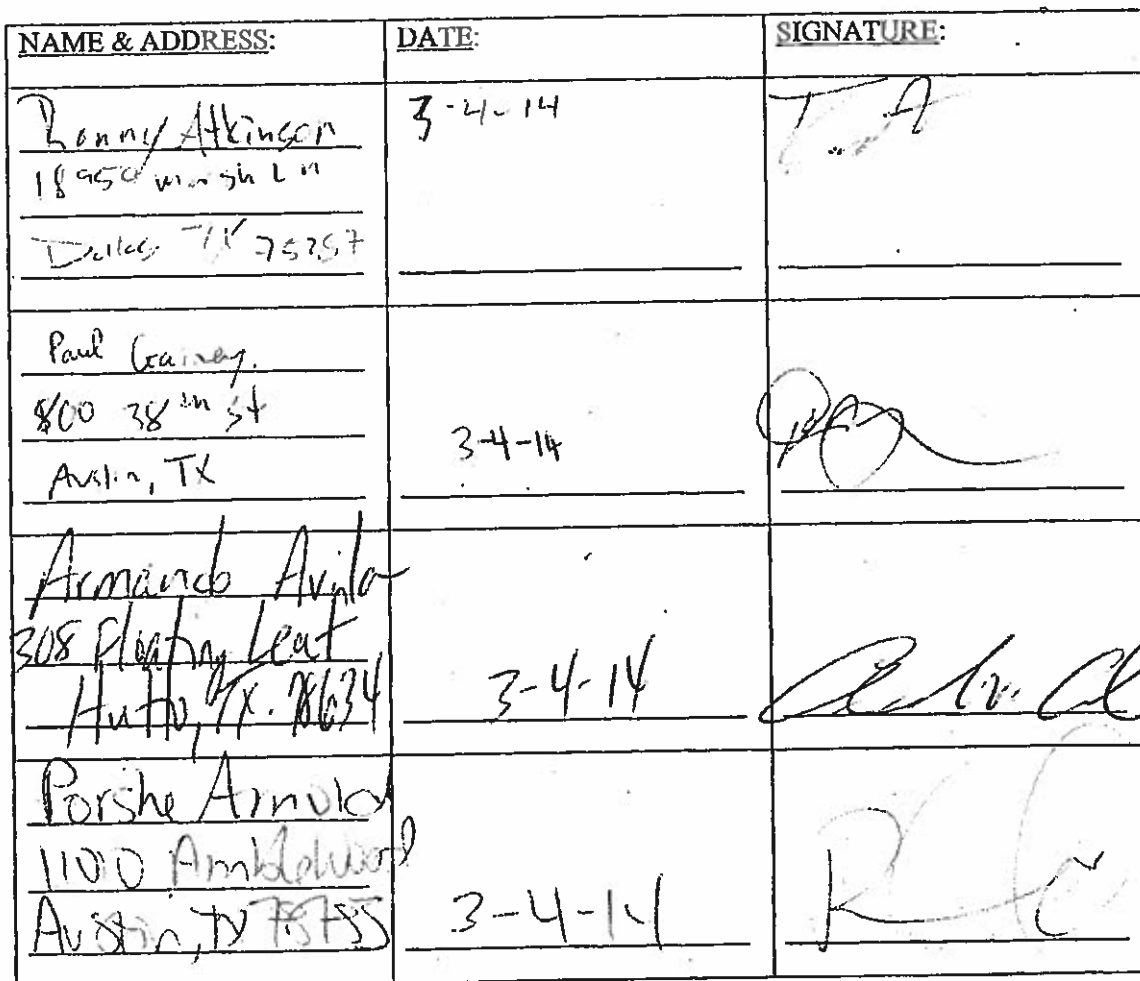 NAME & ADDRESS: DATE: SIGNATURE:
Ronny Atkinson 3-4-14
18950 Marsh Ln
Dallas TX
Paul
800 38th St
Austin, TX 3-4-14
Armando Avila
308 Floating Leaf
Hutto, TX. 78634 3-4-14
Porshe Arnold
1100
Austin, TX 78755 3-4-14